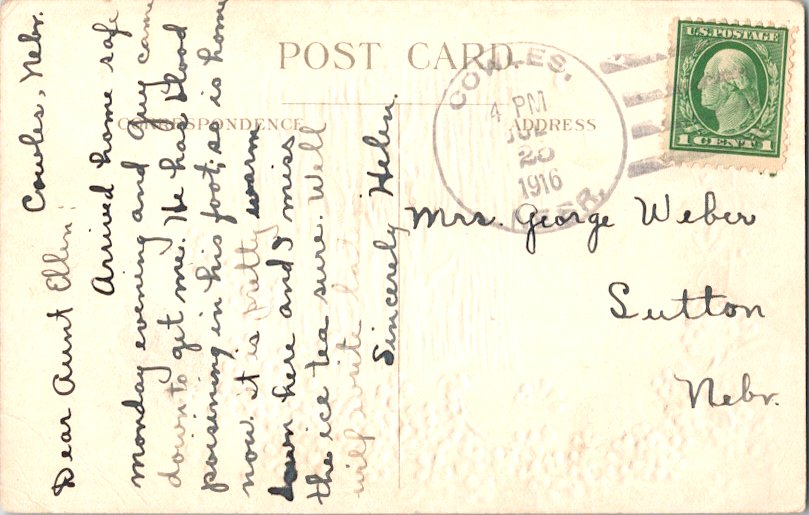 POST CARD
CORRESPONDENCE
ADDRESS
U.S. POSTAGE
1 CENT 1
COWLES,
4 PM
20
1916
NEBR.
Cowles, Nebr.
Dear Aunt Ellen:
Arrived home safe
monday evening and Guy came
down to get me. He has blood
poisoning in his foot, so is home
now. it is pretty warm
down here and I miss
the ice tea sure. Well
will write later
Sincerely Helen.
Mrs. George Weber
Sutton
Nebr.